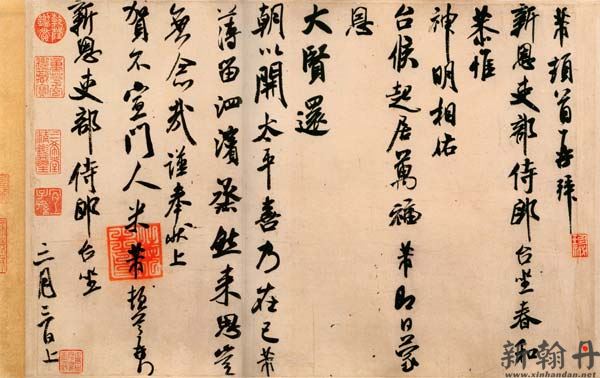 芾頓首再拜
新恩吏部侍郎台坐春和
恭惟
神明相佑
台候起居萬福芾即日蒙
恩
大賢還
朝以開太平喜乃在己芾
薄留泗濱蒸然来思豈
無念哉謹奉状上
賀不宣門人米芾頓首再拜
新恩吏部侍郎台坐
二月三日上
新翰丹
www.xinhandan.net